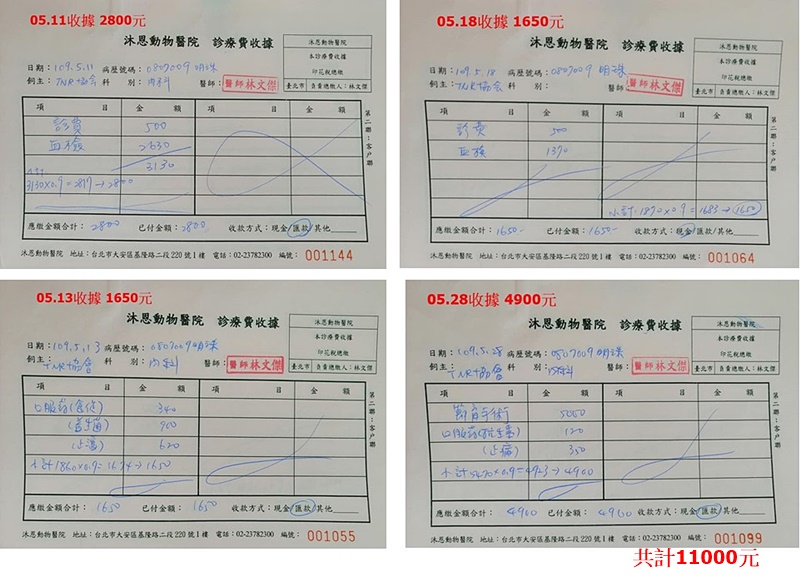 05.11收據 2800元
沐恩動物醫院 診療費收據
沐恩動物醫院
本診療費收據
印花稅總繳
臺北市 負責總繳人：林文傑
日期：109.5.11 病歷號碼：0807009 明珠
飼主：TNR協會 科 別：內科 醫師：醫師林文傑
項 目 金 額 項 目 金 額
診費 500
血檢 2630
3130
3130x0.9=2817→2800
應繳金額合計：2800 已付金額：2800 收款方式：現金/匯款/其他
第二聯：客戶聯
沐恩動物醫院 地址：台北市大安區基隆路二段220號1樓 電話：02-23782300 編號：001144
05.18收據 1650元
沐恩動物醫院 診療費收據
沐恩動物醫院
本診療費收據
印花稅總繳
臺北市 負責總繳人：林文傑
日期：109.5.18 病歷號碼：0807009 明珠
飼主：TNR協會 科 別： 醫師：醫師林文傑
項 目 金 額 項 目 金 額
診費 500
血檢 1370
小計：1870x0.9=1683→1650
應繳金額合計：1650- 已付金額：1650- 收款方式：現金/匯款/其他
第二聯：客戶聯
沐恩動物醫院 地址：台北市大安區基隆路二段220號1樓 電話：02-23782300 編號：001064
05.13收據 1650元
沐恩動物醫院 診療費收據
沐恩動物醫院
本診療費收據
印花稅總繳
臺北市 負責總繳人：林文傑
日期：109.5.13 病歷號碼：0807009明珠
飼主：TNR協會 科 別：內科 醫師：醫師林文傑
項 目 金 額 項 目 金 額
口服藥(食促) 340
(益生菌) 900
(止瀉) 620
小計1860x0.9=1674→1650
應繳金額合計：1650 已付金額：1650 收款方式：現金/匯款/其他
第二聯：客戶聯
沐恩動物醫院 地址：台北市大安區基隆路二段220號1樓 電話：02-23782300 編號：001055
05.28收據 4900元
沐恩動物醫院 診療費收據
沐恩動物醫院
本診療費收據
印花稅總繳
臺北市 負責總繳人：林文傑
日期：109.5.28 病歷號碼：0807009明珠
飼主：TNR協會 科 別：內科 醫師：醫師林文傑
項 目 金 額 項 目 金 額
節育手術 5000
口服藥(抗生素) 120
(止痛) 350
小計5470x0.9=4923→4900
應繳金額合計：4900 已付金額：4900 收款方式：現金/匯款/其他
第二聯：客戶聯
沐恩動物醫院 地址：台北市大安區基隆路二段220號1樓 電話：02-23782300 編號：001099
共計11000元